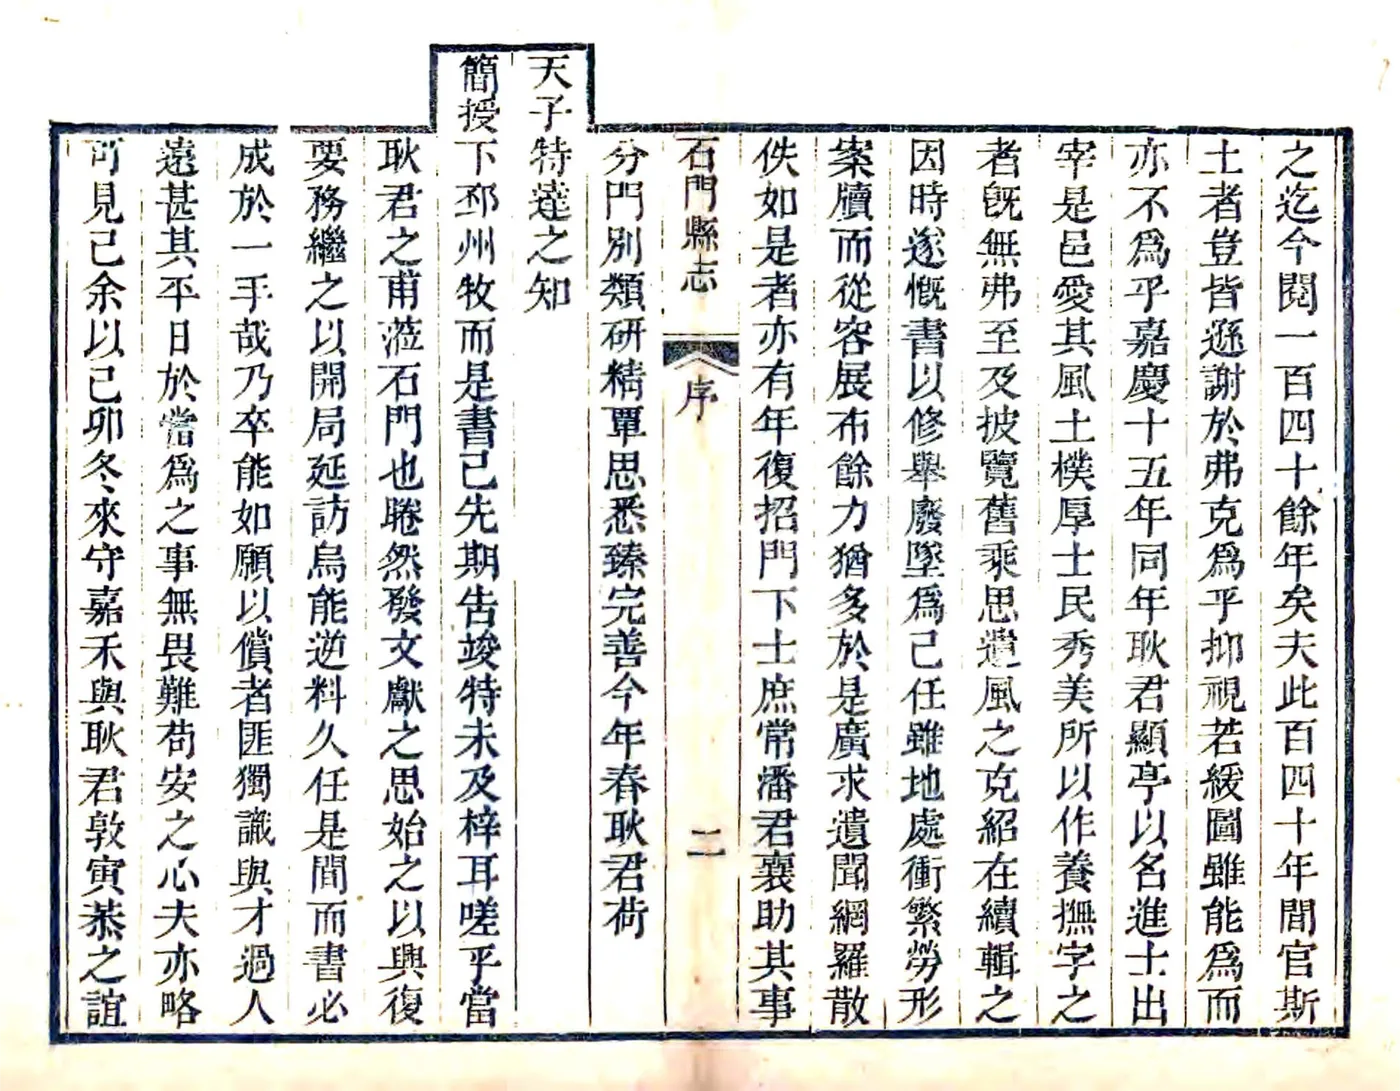 之迄今閱一百四十餘年矣夫此百四十年間官斯
土者豈皆遜謝於弗克爲乎抑視若緩圖雖能爲而
亦不爲乎嘉慶十五年同年耿君顯亭以名進士出
宰是邑愛其風土樸厚士民秀美所以作養撫字之
者旣無弗至及披覽舊乘思遺風之克紹在續輯之
因時遂慨書以修舉廢墜爲己任雖地處衝繁勞形
案牘而從容展布餘力猶多於是廣求遺聞網羅散
佚如是者亦有年復招門下士庶常潘君襄助其事
石門縣志
序
二
分門別類研精覃思悉臻完善今年春耿君荷
天子特達之知
簡授下邳州牧而是書已先期告竣特未及梓耳嗟乎當
耿君之甫蒞石門也睠然發文獻之思始之以興復
要務繼之以開局延訪烏能逆料久任是間而書必
成於一手哉乃卒能如願以償者匪獨識與才過人
遠甚其平日於當爲之事無畏難苟安之心夫亦略
可見已余以己卯冬來守嘉禾與耿君敦寅恭之誼